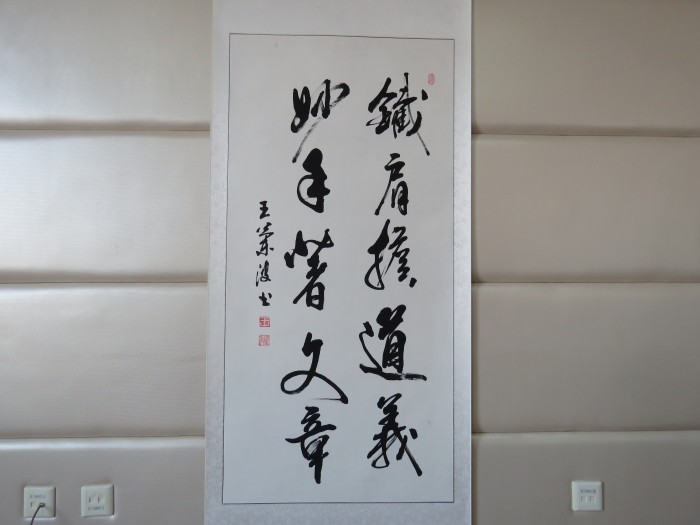 鐵肩擔道義
妙手著文章
王榮波书